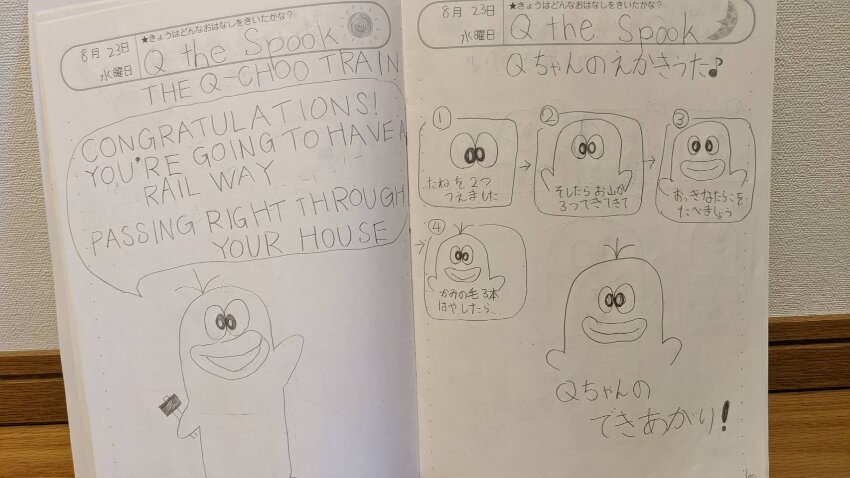 ★きょうはどんなおはなしをきいたかな?
8月 23日
水曜日
Q the Spook
THE Q-CHOO TRAIN
CONGRATULATIONS!
YOU'RE GOING TO HAVE A
RAIL WAY
PASSING RIGHT THROUGH
YOUR HOUSE
★きょうはどんなおはなしをきいたかな?
8月 23日
水曜日
Q the Spook
Qちゃんのえかきうた♪
①
たねを2つ
うえました
②
そしたらお山が
3つできてきて
③
おっきなたらこを
たべましょう
④
かみの毛3本
はやしたら…
Qちゃんの
できあがり!